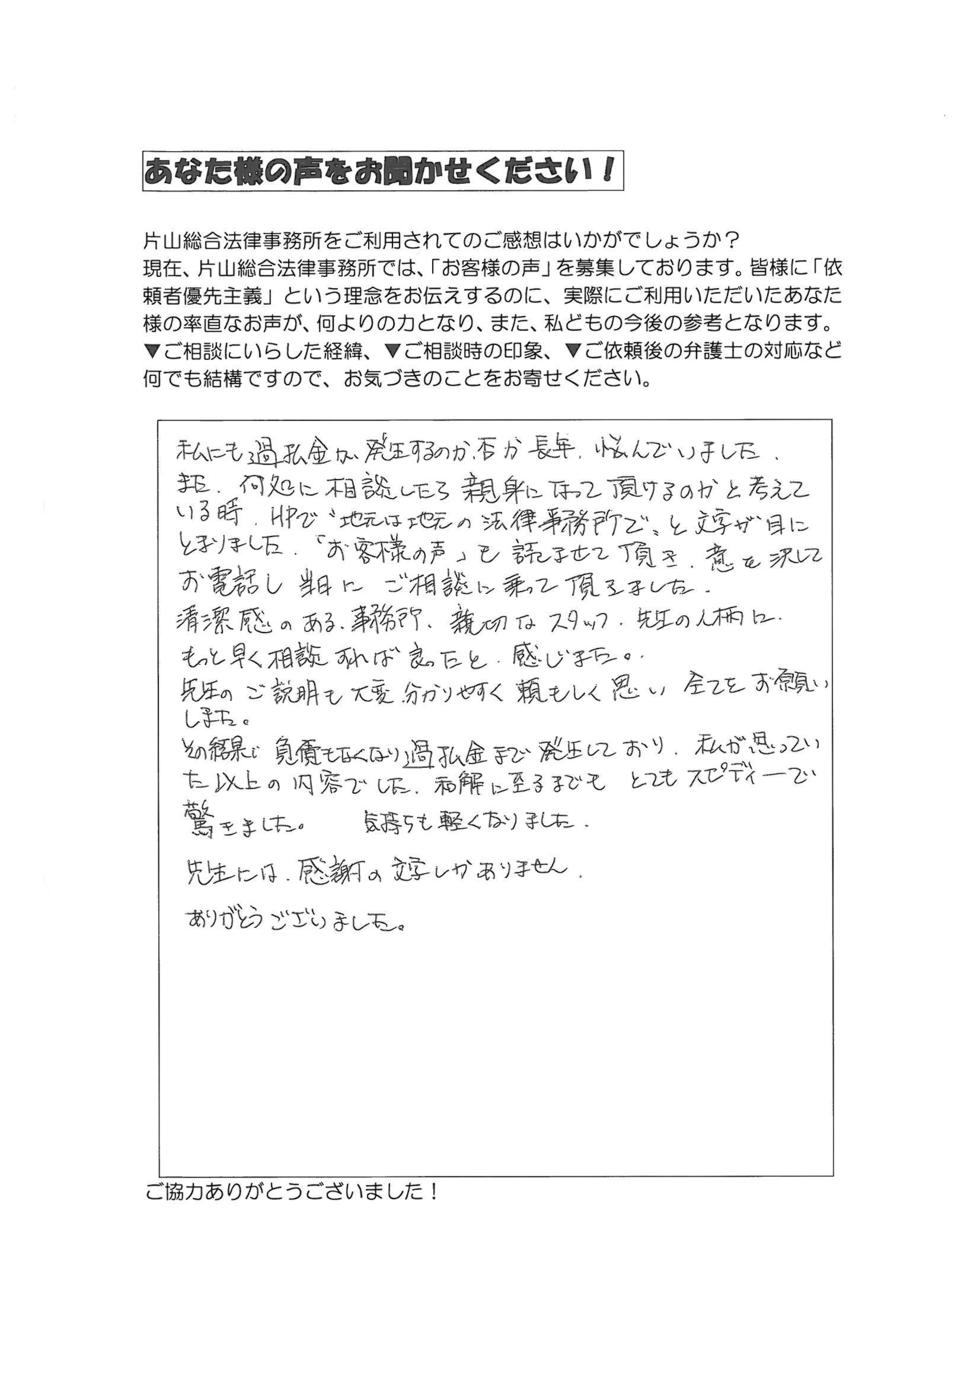 あなた様の声をお聞かせください！
片山総合法律事務所をご利用されてのご感想はいかがでしょうか？
現在、片山総合法律事務所では、「お客様の声」を募集しております。皆様に「依
頼者優先主義」という理念をお伝えするのに、実際にご利用いただいたあなた
様の率直なお声が、何よりの力となり、また、私どもの今後の参考となります。
▼ご相談にいらした経緯、▼ご相談時の印象、▼ご依頼後の弁護士の対応など
何でも結構ですので、お気づきのことをお寄せください。
私にも過払金が発生するのか、否か長年、悩んでいました。
また、何処に相談したら親身になって頂けるのかと考えて
いる時、HPで〝地元は地元の法律事務所で〟と文字が目に
とまりました。「お客様の声」も読ませて頂き、意を決して
お電話し当日にご相談に乗って頂きました。
清潔感のある、事務所、親切なスタッフ、先生の人柄に、
もっと早く相談すれば良ったと、感じました。
先生のご説明も大変分かりやすく頼もしく思い全てをお願い
しました。
その結果、負債もなくなり過払金まで発生しており、私が思ってい
た以上の内容でした。和解に至るまでもとてもスピディーで
驚きました。　気持ちも軽くなりました。
先生には、感謝の文字しかありません。
ありがとうございました。
ご協力ありがとうございました！